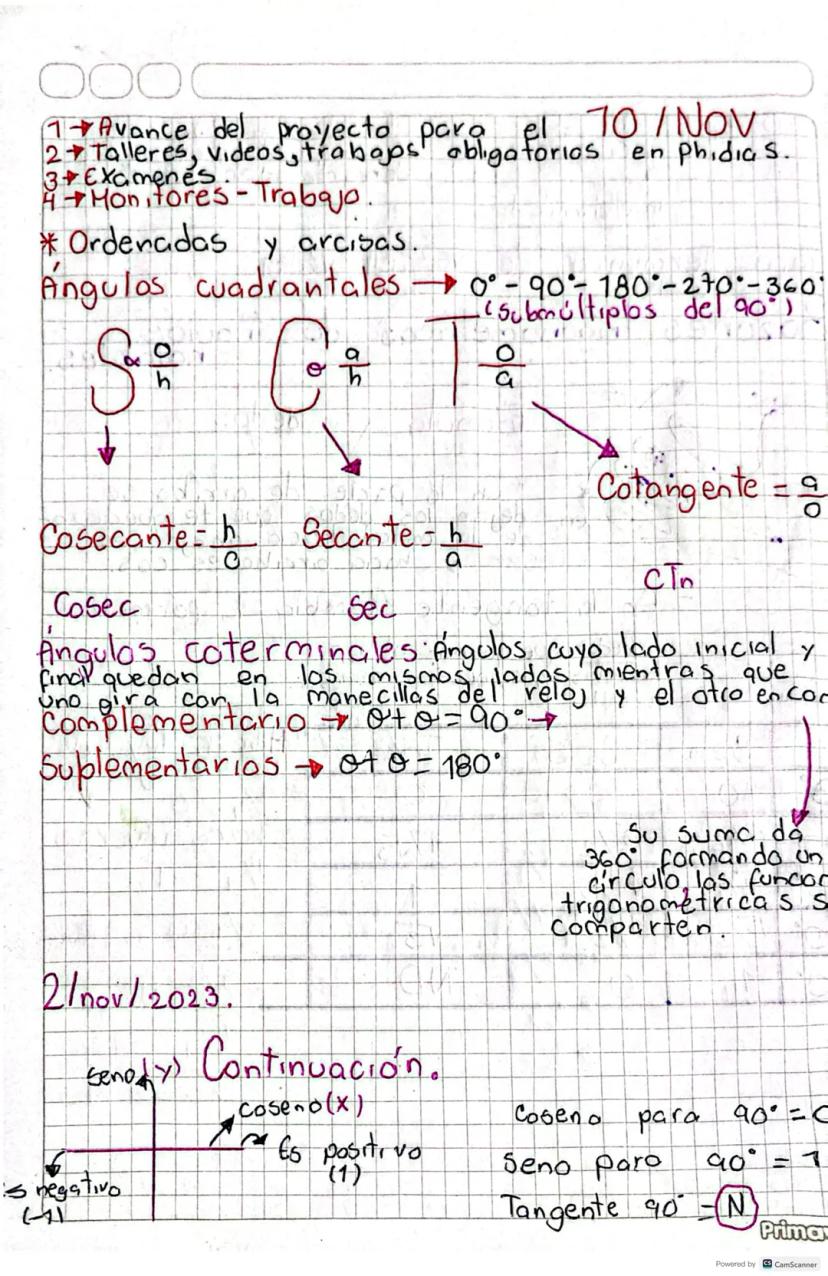 1→Avance del proyecto para el 10/NOV
2→Talleres, videos, trabajos obligatorios en Phidias.
3→Examenes.
4→Monitores-Trabajo.
* Ordenadas y arcisas.
Ángulos cuadrantales → 0°-90°-180°-270°-360°
(Submúltiplos del 90°)
S α o/h C θ a/h T o/a
Cotangente = a/o
Cosecante = h/o Secante = h/a
CTn
Cosec Sec
Ángulos coterminales: Ángulos cuyo lado inicial y
final quedan en los mismos lados mientras que
uno gira con la manecillas del reloj y el otro en con
Complementario → θ+θ=90° →
Suplementarios → θ+θ=180°
Su suma da
360° formando un
círculo, las funcio
trigonométricas s
comparten.
2/nov/2023.
seno(y) Continuación.
coseno(x)
Es positivo
(1)
s negativo
(-1)
Coseno para 90° = 0
Seno para 90° = 1
Tangente 90° = N
Primav
Powered by CS CamScanner